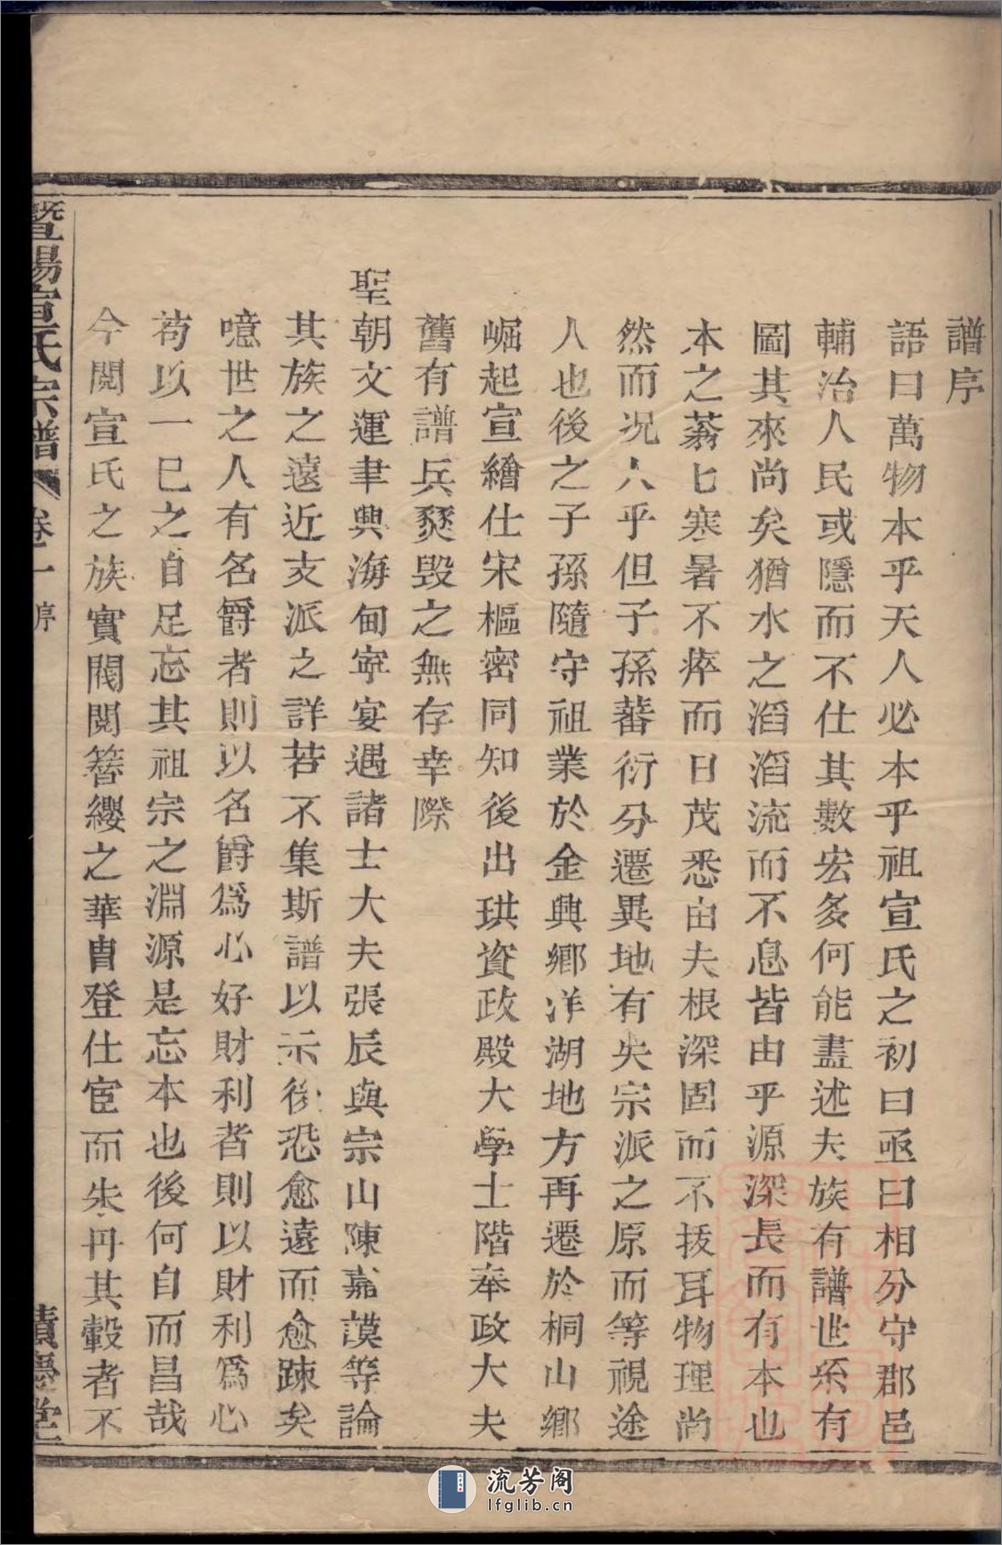 譜序
語曰萬物本乎天人必本乎祖宣氏之初曰亟曰相分守郡邑
輔治人民或隱而不仕其數宏多何能盡述夫族有譜世系有
圖其來尚矣猶水之滔滔流而不息皆由乎源深長而有本也
本之蓊匕寒暑不瘁而日茂悉由夫根深固而不拔耳物理尚
然而况人乎但子孫蕃衍分遷異地有失宗派之原而等視途
人也後之子孫隨守祖業於金興鄉洋湖地方再遷於桐山鄉
崛起宣繪仕宋樞密同知後出珙資政殿大學士階奉政大夫
舊有譜兵燹毀之無存幸際
聖朝文運聿興海甸寧宴遇諸士大夫張辰與宗山陳嘉謨等論
其族之遠近支派之詳若不集斯譜以示後恐愈遠而愈踈矣
噫世之人有名爵者則以名爵爲心好財利者則以財利爲心
苟以一已之自足忘其祖宗之淵源是忘本也後何自而昌哉
今閱宣氏之族實閥閱簪纓之華胄登仕宦而朱丹其轂者不
暨陽宣氏宗譜 卷一 序 積慶堂
流芳阁
lfglib.cn